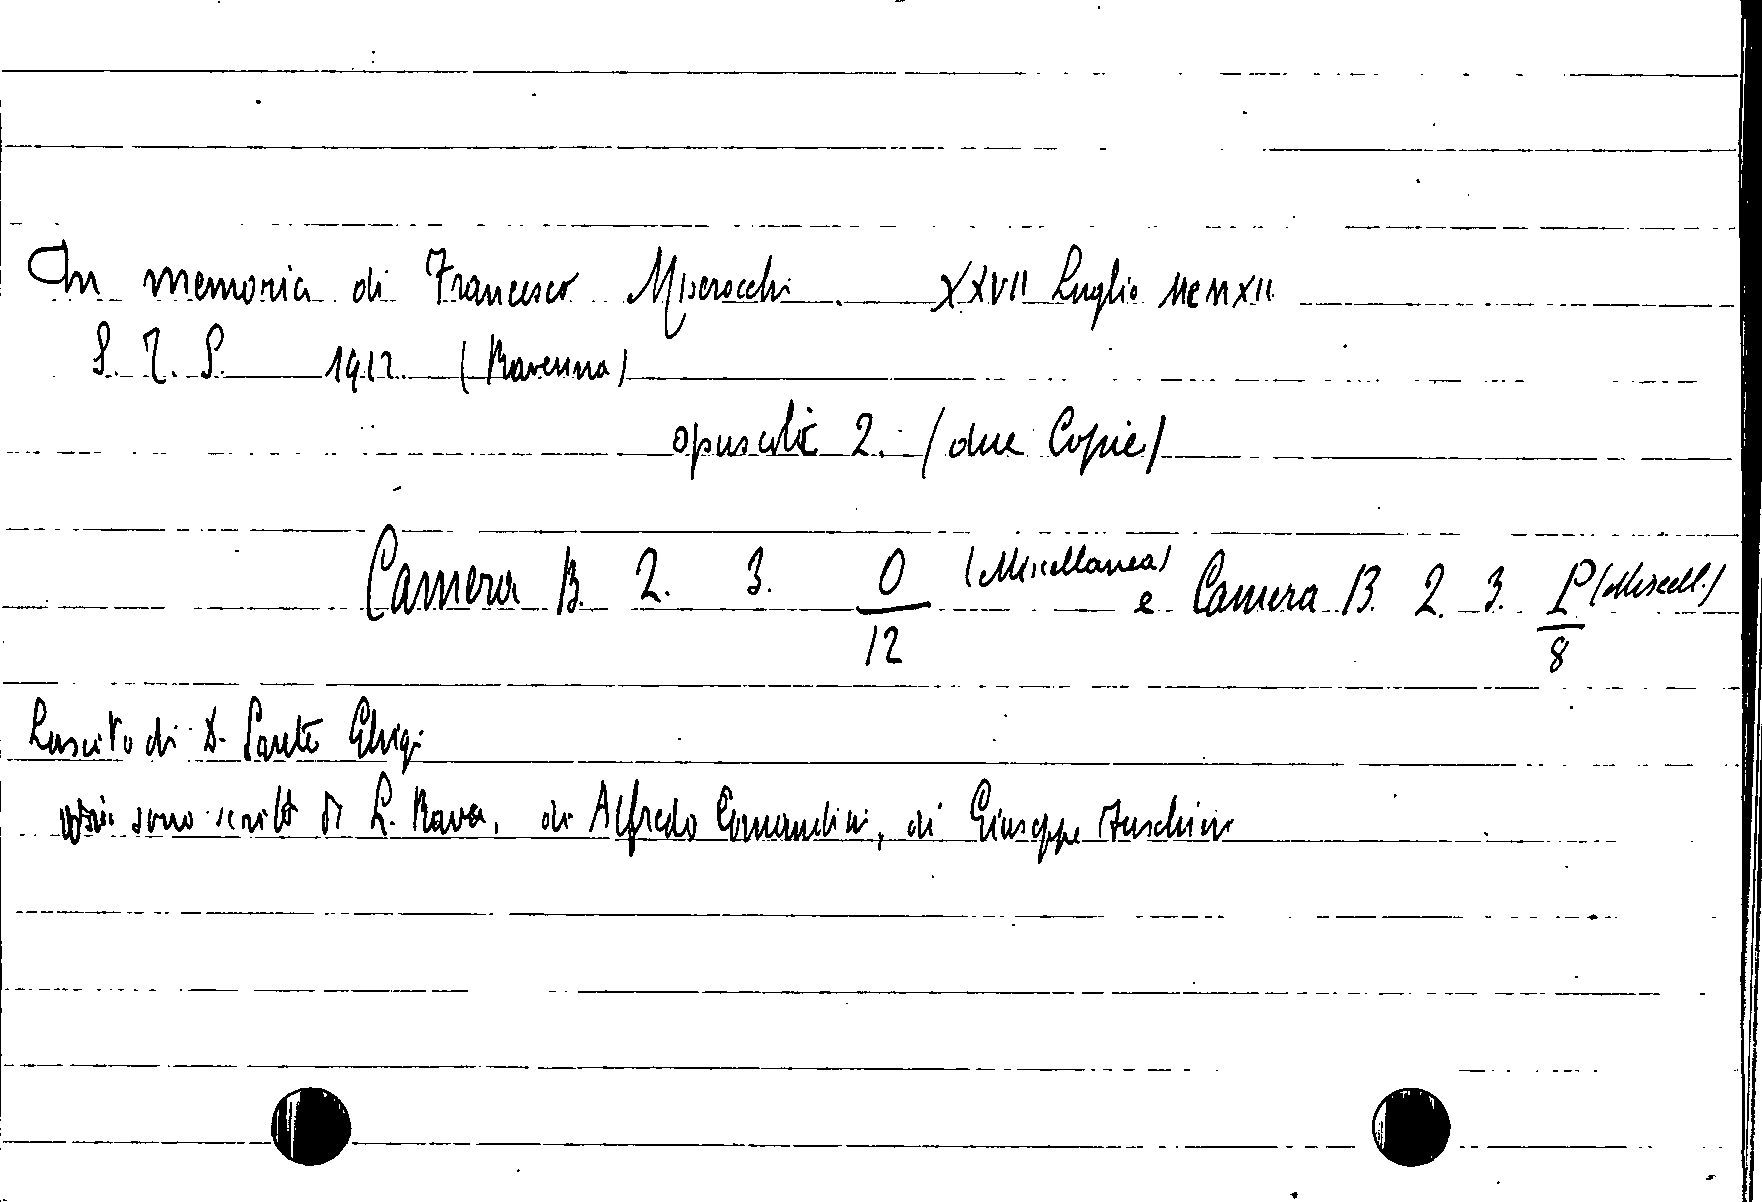 In memoria di Francesco Miserocchi. XXVII Luglio MCMXII
S. T. S. 1912 (Ravenna)
opuscoli 2. (due Copie)
Camera B. 2. 3. O/12 (Miscellanea) e Camera B. 2. 3. P/8 (Miscell.)
Lascito di D. Sante Ghigi
sono scritti di L. Rava, di Alfredo Comandini, di Giuseppe